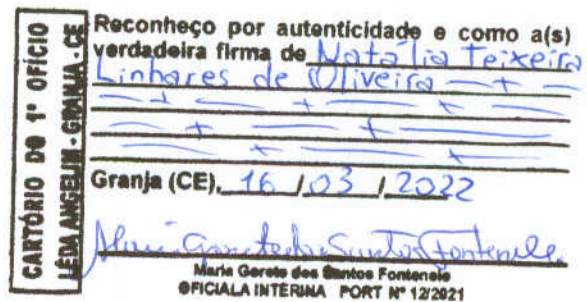 CARTÓRIO DO 1º OFÍCIO
LÊDA ANGELIM - GRANJA - CE
Reconheço por autenticidade e como a(s)
verdadeira firma de Natália Teixeira
Linhares de Oliveira
Granja (CE), 16 / 03 / 2022
Maria Gorete dos Santos Fontenele
Maria Gorete dos Santos Fontenele
OFICIALA INTERINA PORT Nº 12/2021